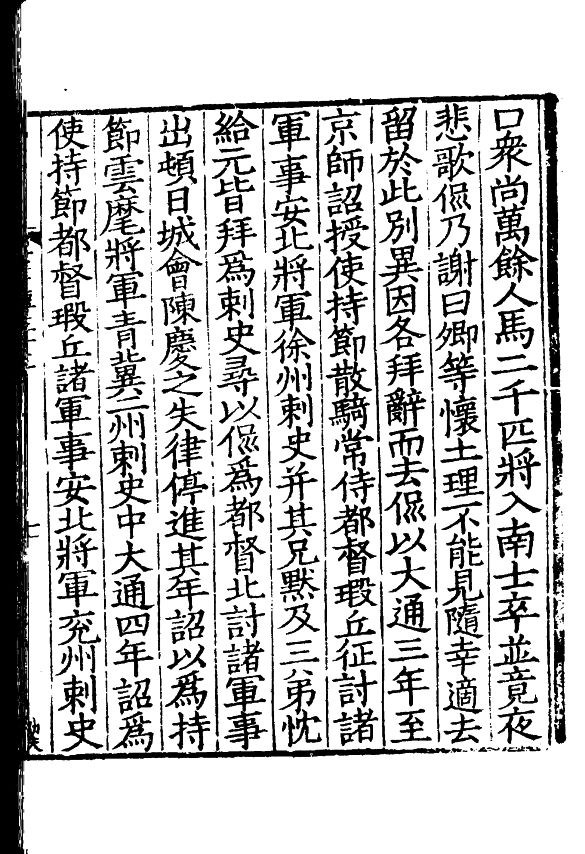 口衆尚萬餘人馬二千匹將入南士卒並竟夜
悲歌侃乃謝曰卿等懷土理不能見隨幸適去
留於此別異因各拜辭而去侃以大通三年至
京師詔授使持節散騎常侍都督瑕丘征討諸
軍事安北將軍徐州刺史并其兄黙及三弟忱
給元皆拜爲刺史尋以侃爲都督北討諸軍事
出頓日城會陳慶之失律停進其年詔以爲持
節雲麾將軍青冀二州刺史中大通四年詔爲
使持節都督瑕丘諸軍事安北將軍兖州刺史